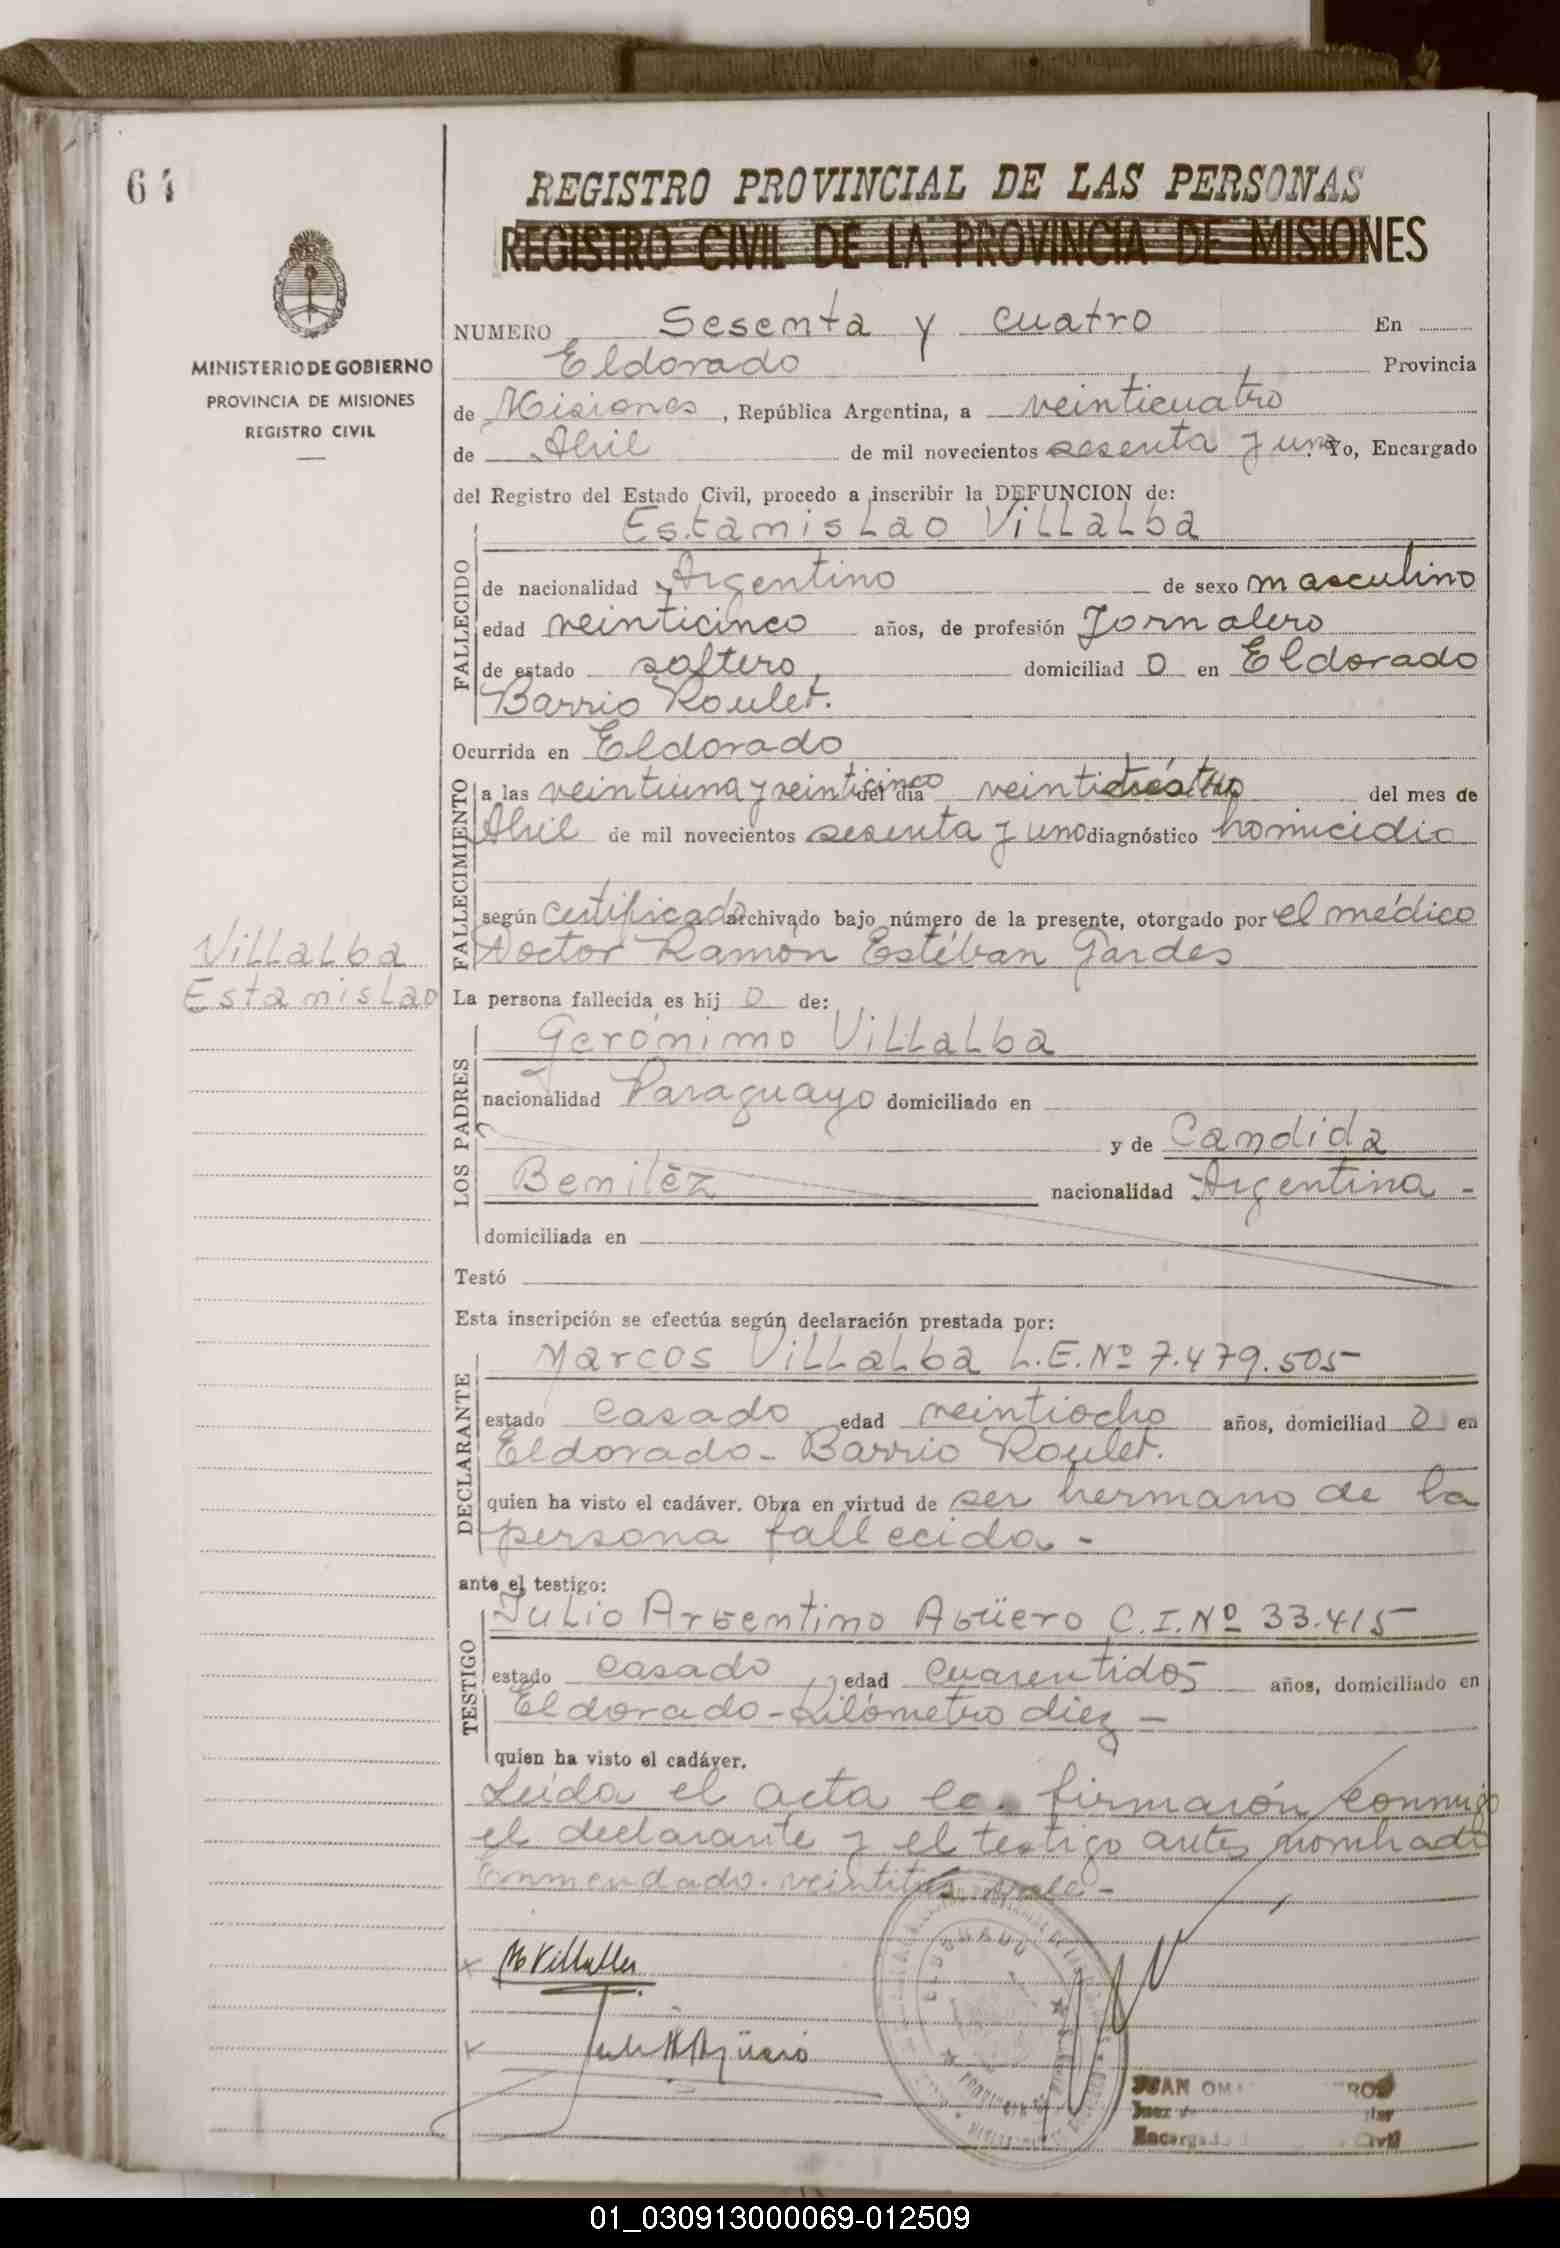 64
REGISTRO PROVINCIAL DE LAS PERSONAS
REGISTRO CIVIL DE LA PROVINCIA DE MISIONES
MINISTERIO DE GOBIERNO
PROVINCIA DE MISIONES
REGISTRO CIVIL
NUMERO Sesenta y cuatro En
Eldorado Provincia
de Misiones, República Argentina, a veinticuatro
de Abril de mil novecientos sesenta y uno. Yo, Encargado
del Registro del Estado Civil, procedo a inscribir la DEFUNCION de:
Estanislao Villalba
FALLECIDO
de nacionalidad Argentino de sexo masculino
edad veinticinco años, de profesión Jornalero
de estado soltero, domiciliad o en Eldorado
Barrio Roulet.
Ocurrida en Eldorado
FALLECIMIENTO
a las veintiuna y veinticinco del día veintitrés
del mes de
Abril de mil novecientos sesenta y uno diagnóstico homicidio
según certificado archivado bajo número de la presente, otorgado por el médico
Doctor Ramón Estéban Gardes
Villalba
Estanislao
La persona fallecida es hij o de:
LOS PADRES
Gerónimo Villalba
nacionalidad Paraguayo domiciliado en
y de Candida
Benitez nacionalidad Argentina -
domiciliada en
Testó
Esta inscripción se efectúa según declaración prestada por:
DECLARANTE
Marcos Villalba L.E.Nº 7.479.505
estado casado edad veintiocho años, domiciliad o en
Eldorado - Barrio Roulet.
quien ha visto el cadáver. Obra en virtud de ser hermano de la
persona fallecida -
ante el testigo:
TESTIGO
Julio Argentino Agüero C.I.Nº 33.415
estado casado, edad cuarentidos años, domiciliado en
Eldorado - kilómetro diez -
quien ha visto el cadáver.
Leída el acta la firmarón conmigo
el declarante y el testigo antes nombrado
Enmendado. veintitrés. Vale -
x M Villalba
x
ELDORADO
JUAN
Encargado Civil
01_030913000069-012509